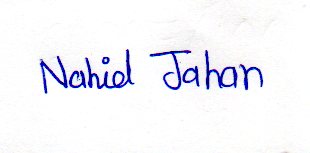 Nahid Jahan